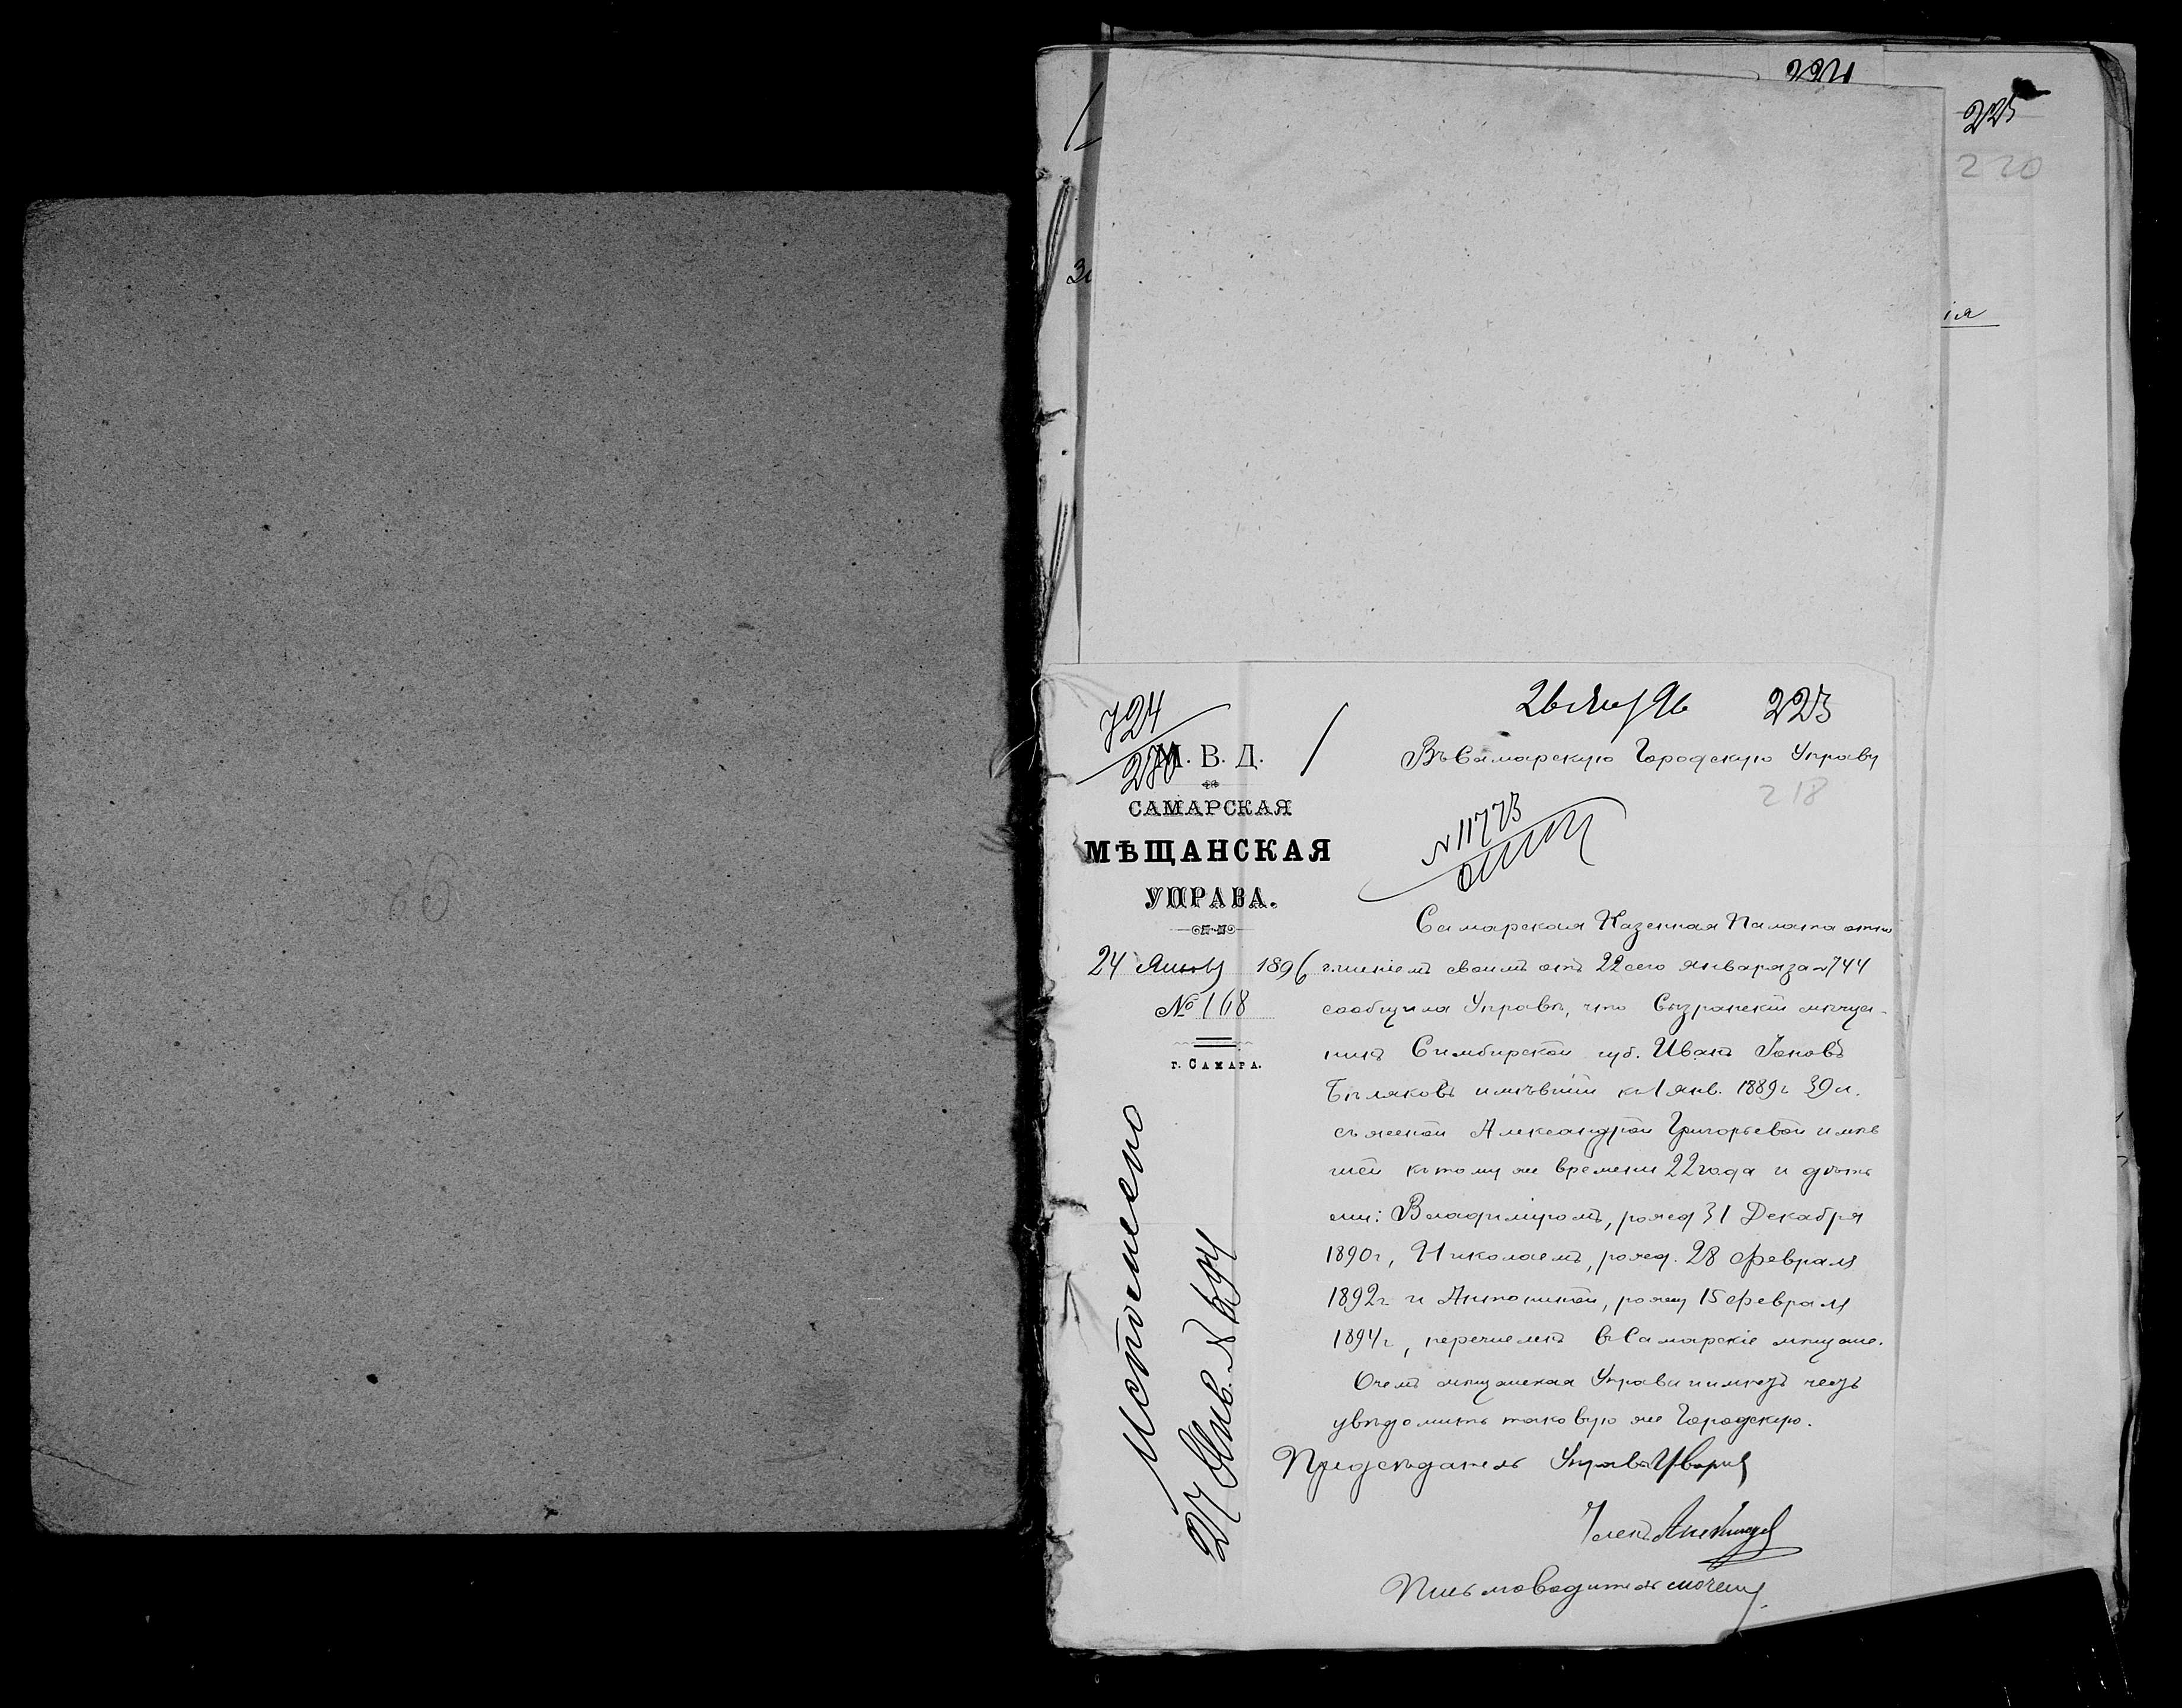 224
225
220
ія
26 Янв/96
223
724
280
М. В. Д.
САМАРСКАЯ
МѢЩАНСКАЯ
УПРАВА.
24 Янв 1896
№ 168
г. САМАРА.
Въ Самарскую Городскую Управу
218
№ 11773
Самарская Казенная Палата отно
шеніемъ своимъ отъ 22 сего января за № 744
сообщила Управѣ, что Сызранскій мѣща-
нинъ Симбирской губ. Иванъ Іоновъ
Бѣляковъ имѣвшій къ 1 янв. 1889 г 39 л.
съ женой Александрой Григорьевой имѣв
шей къ тому же времени 22 года и дѣть
ми: Владиміромъ, рожд 31 Декабря
1890 г, Николаемъ, рожд. 28 Февраля
1892 г и Антониной, рожд 15 Февраля
1894 г, перечисленъ въ Самарскіе мѣщане.
О чемъ мѣщанская Управа и имѣетъ честь
увѣдомить таковую же Городскую.
Предсѣдатель Управы
Членъ
Письмоводитель
Исполнено
27 Янв. № 694